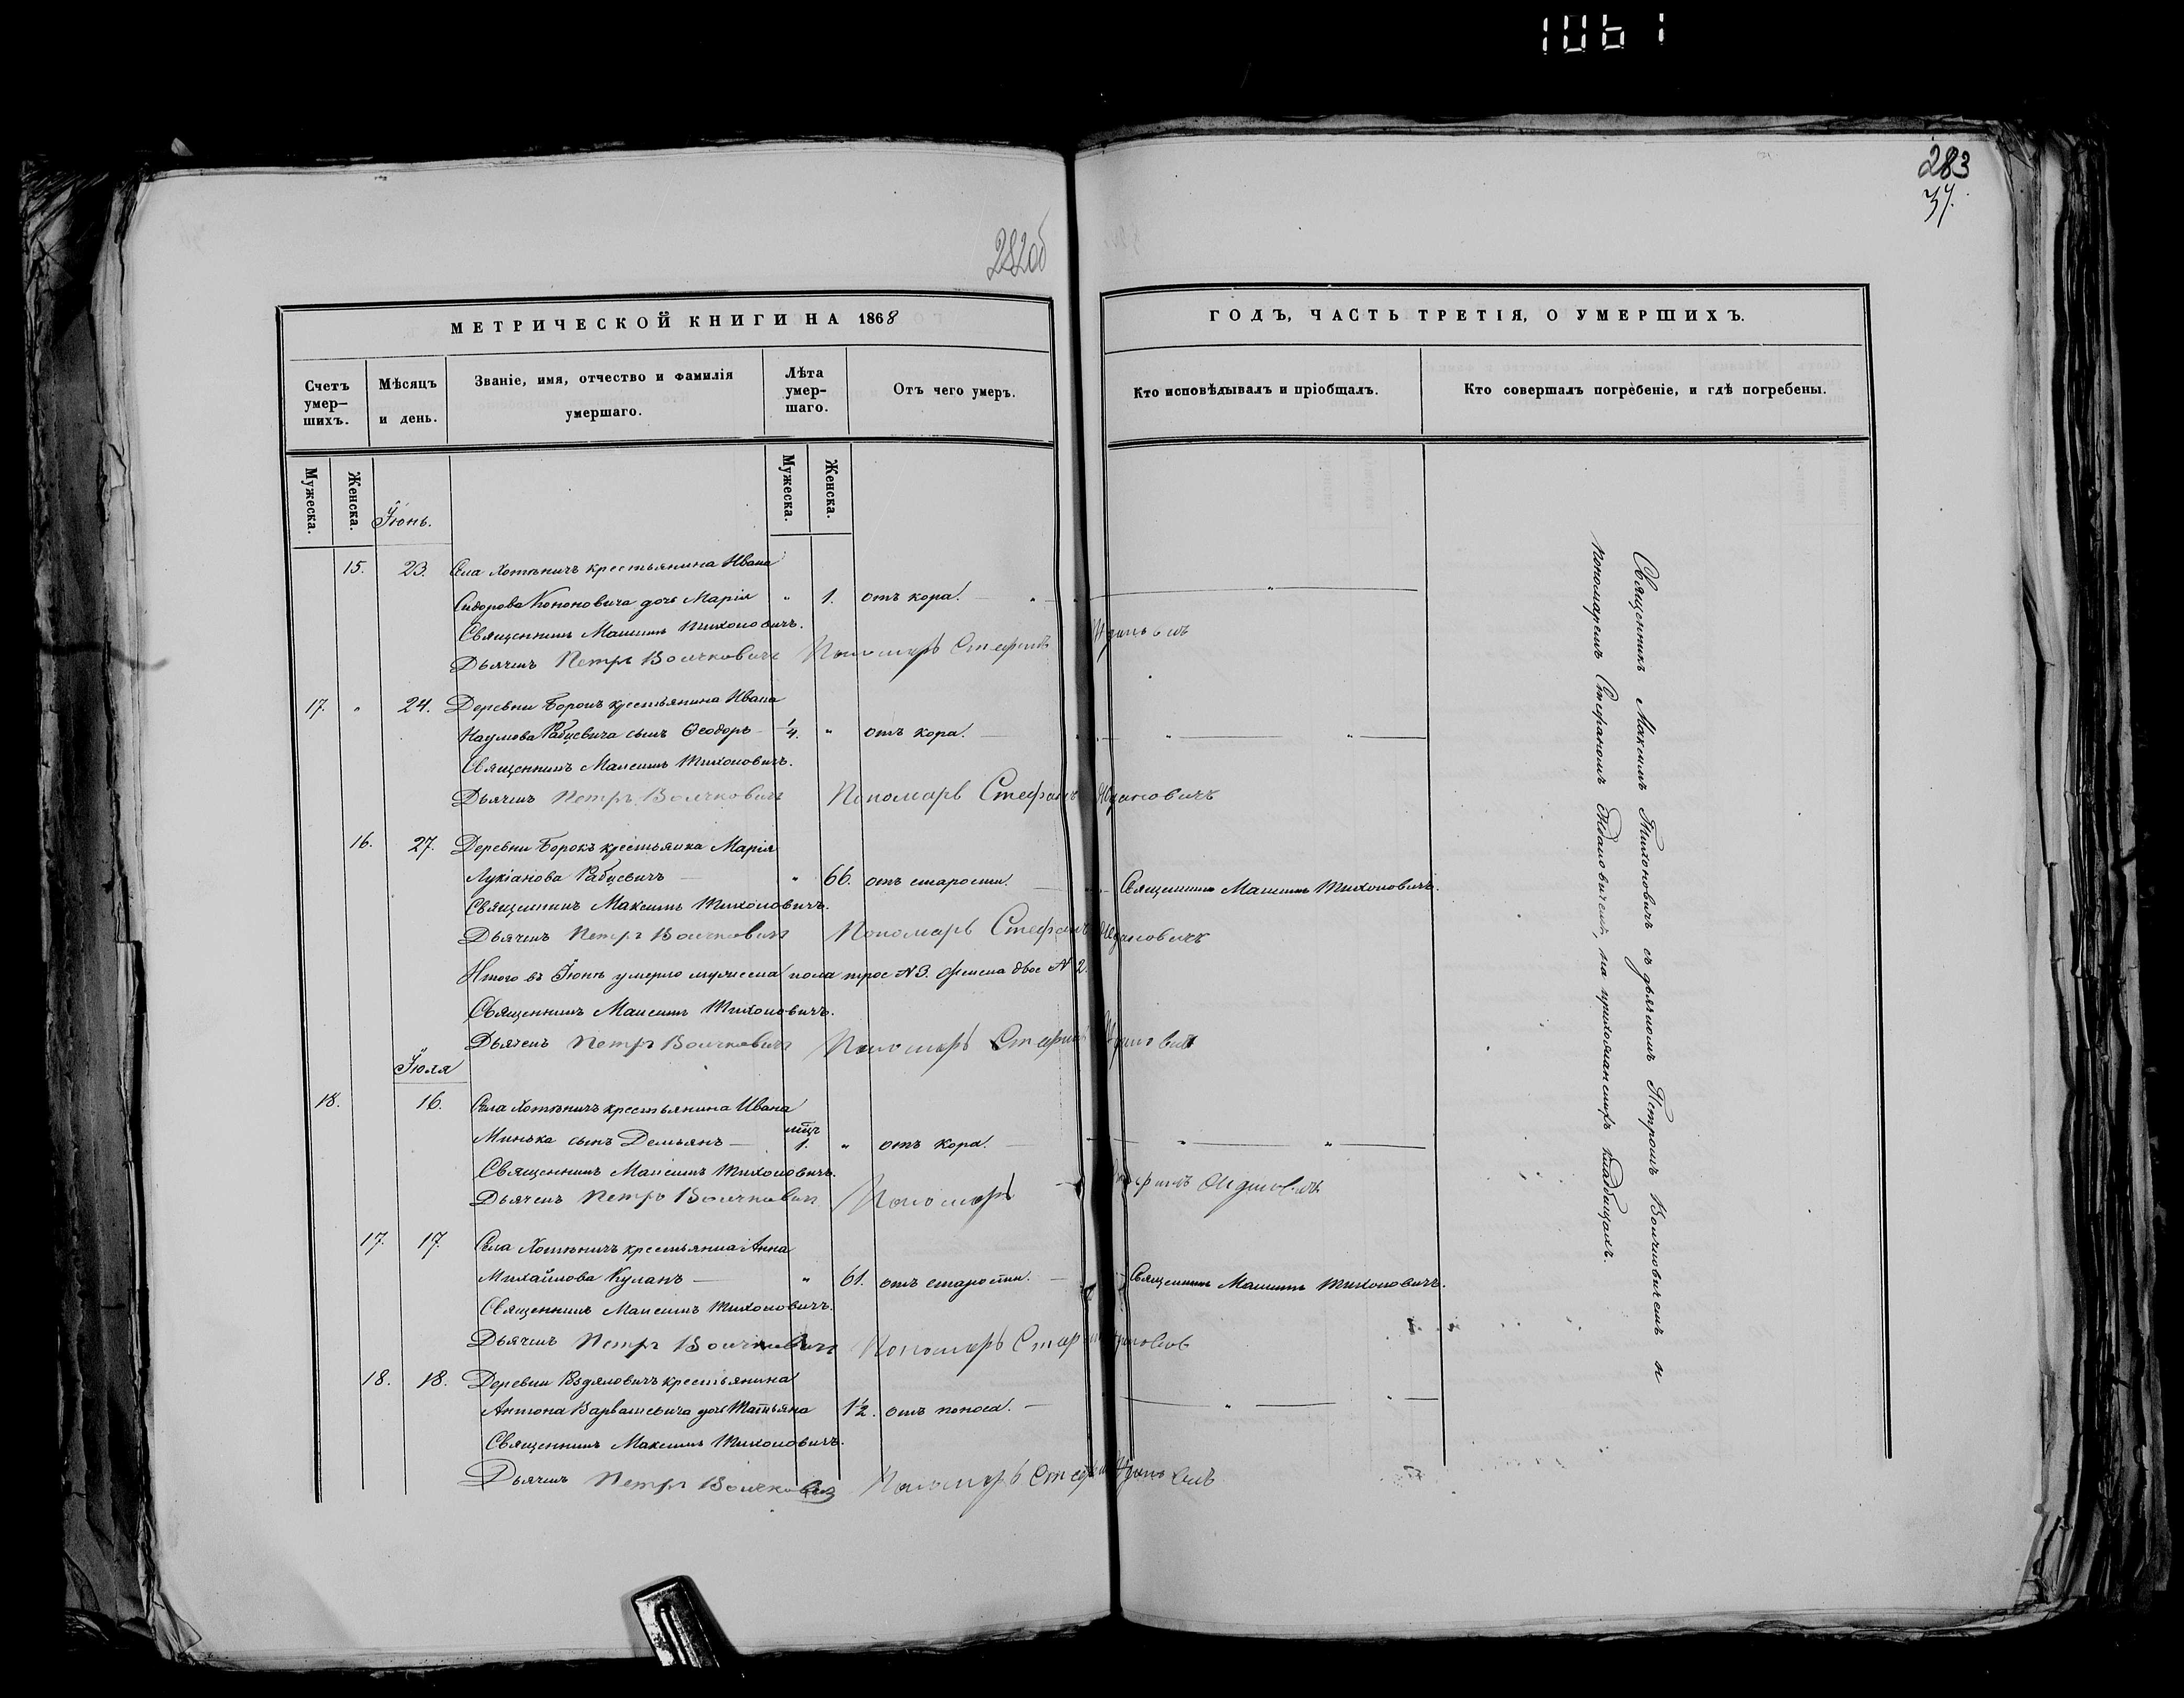 1061
283
37.
282об
МЕТРИЧЕСКОЙ КНИГИ НА 1868
ГОДЪ, ЧАСТЬ ТРЕТІЯ, О УМЕРШИХЪ.
Счетъ умер-шихъ.
Мѣсяцъ и день.
Званіе, имя, отчество и фамилія умершаго.
Лѣта умер-шаго.
Отъ чего умеръ.
Кто исповѣдывалъ и пріобщалъ.
Кто совершалъ погребеніе, и гдѣ погребены.
Мужеска.
Женска.
Мужеска.
Женска.
Іюнь.
15. 23. Села Хотѣничъ крестьянина Ивана
Сидорова Кононовича дочь Марія " 1. отъ кора. " "
Священникъ Максимъ Тихоновичъ.
Дьячекъ Петръ Волчковичъ Пономарь Стефанъ Ждановичъ
17. " 24. Деревни Борокъ крестьянина Ивана
Наумова Рабцевича сынъ Ѳеодоръ 1/4. " отъ кора. " "
Священникъ Максимъ Тихоновичъ.
Дьячекъ Петръ Волчковичъ Пономарь Стефанъ Ждановичъ
16. 27. Деревни Борокъ крестьянка Марія
Лукіанова Рабцевичъ " 66. отъ старости. Священникъ Максимъ Тихоновичъ.
Священникъ Максимъ Тихоновичъ.
Дьячекъ Петръ Волчковичъ Пономарь Стефанъ Ждановичъ
Итого въ Іюнѣ умерло мужеска пола трое N 3. женска двое N 2.
Священникъ Максимъ Тихоновичъ.
Дьячекъ Петръ Волчковичъ Пономарь Стефанъ Ждановичъ
Іюля
18. 16. Села Хотѣничъ крестьянина Ивана
Минька сынъ Демьянъ мѣц 1. " отъ кора. " "
Священникъ Максимъ Тихоновичъ.
Дьячекъ Петръ Волчковичъ Пономарь Стефанъ Ждановичъ
17. 17. Села Хотѣничъ крестьянка Анна
Михайлова Куланъ " 61. отъ старости. Священникъ Максимъ Тихоновичъ.
Священникъ Максимъ Тихоновичъ.
Дьячекъ Петръ Волчковичъ Пономарь Стефанъ Ждановичъ
18. 18. Деревни крестьянина
Антона дочь Татьяна 1 1/2. отъ поноса. " "
Священникъ Максимъ Тихоновичъ.
Дьячекъ Петръ Волчковичъ Пономарь Стефанъ Ждановичъ
Священникъ Максимъ Тихоновичъ съ дьячкомъ Петромъ Волчковичемъ и
пономаремъ Стефаномъ Ждановичемъ, на прихожанскихъ кладбищахъ.